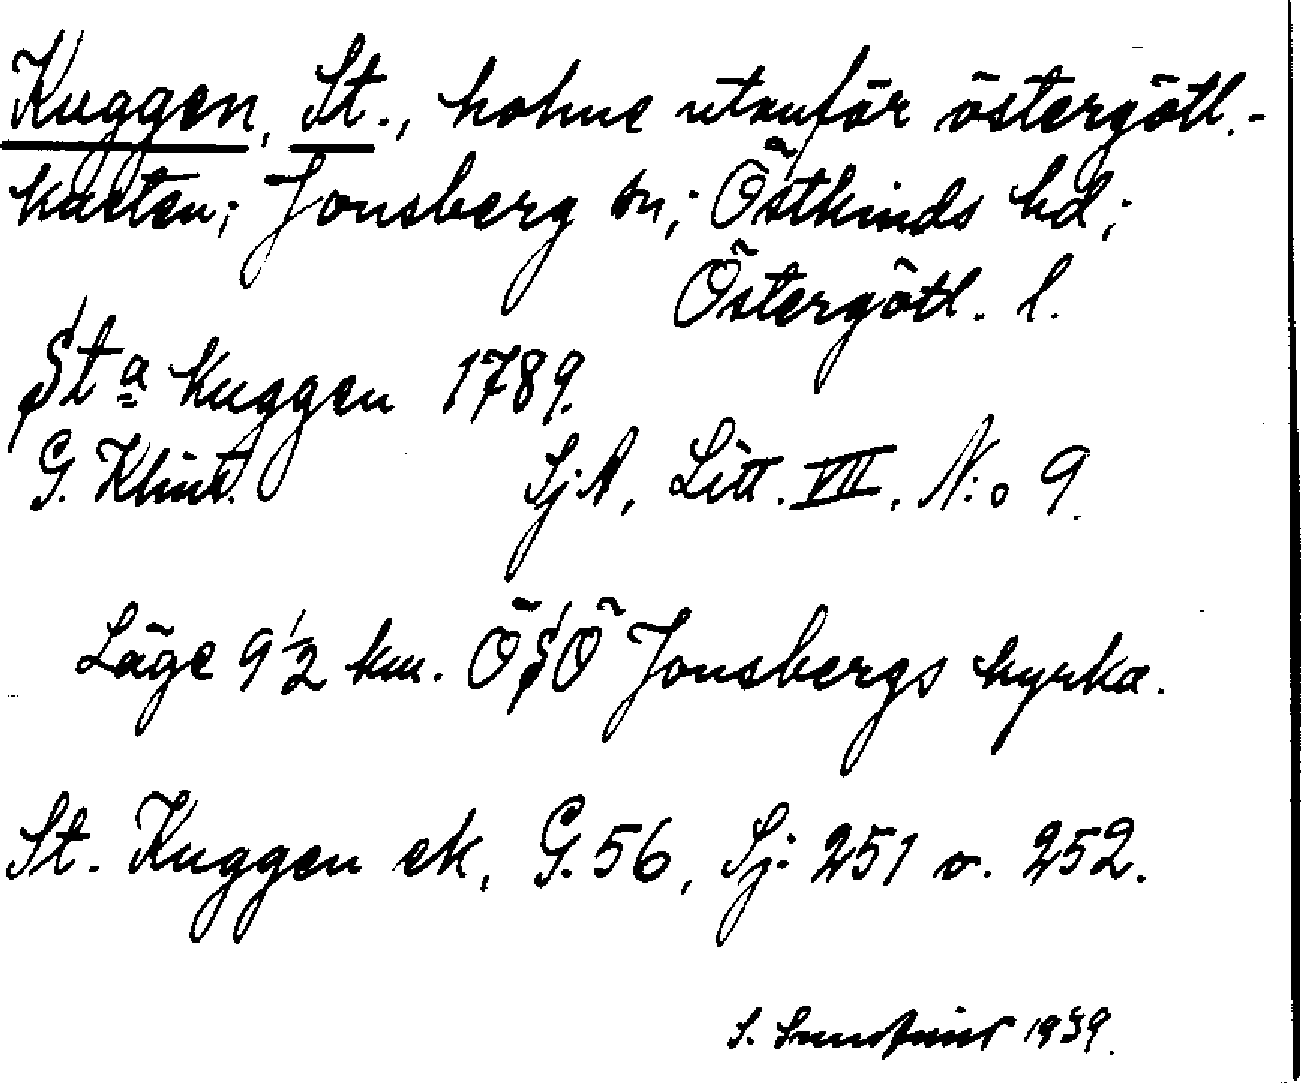 Kuggen, St., holme utanför östergötl.-
kusten; Jonsberg sn; Östkinds hd;
Östergötl. l.
St a Kuggen 1789.
G. Klint. SjA, Litt. VII. N:o 9.
Läge 9 1/2 km. ÖSÖ Jonsbergs kyrka.
St. Kuggen ek, G. 56, Sj: 251 o. 252.
S. 1939.